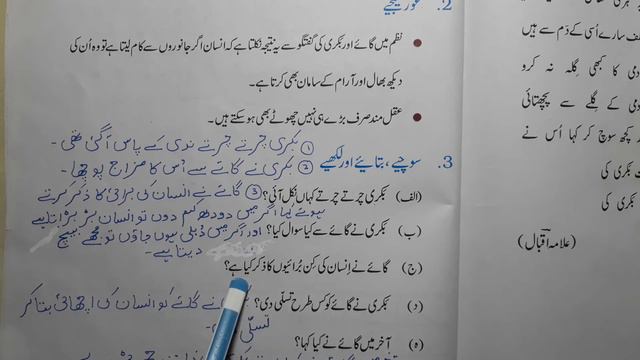 2. غور کیجیے
نظم میں گائے اور بکری کی گفتگو سے یہ نتیجہ نکلتا ہے کہ انسان اگر جانوروں سے کام لیتا ہے تو وہ اُن کی
دیکھ بھال اور آرام کے سامان بھی کرتا ہے۔
عقل مند صرف بڑے ہی نہیں چھوٹے بھی ہو سکتے ہیں۔
① بکری چرتے چرتے ندی کے پاس آ گئی تھی۔
3. سوچیے، بتائیے اور لکھیے
② بکری نے گائے سے اُس کا مزاج پوچھا۔
(الف) بکری چرتے چرتے کہاں نکل آئی؟
③ گائے نے انسان کی برائی کا ذکر کرتے
ہوئے کہا اگر میں دودھ کم دوں تو انسان بڑبڑاتا ہے
(ب) بکری نے گائے سے کیا سوال کیا؟
اور اگر میں دُبلی ہوں جاؤں تو مجھے بیچ
دیتا ہے۔
(ج) گائے نے انسان کی کِن بُرائیوں کا ذکر کیا ہے؟
نے گائے کو انسان کی اچھائی بتا کر
(د) بکری نے گائے کو کس طرح تسلّی دی؟
تسلّی
(ہ) آخر میں گائے نے کیا کہا؟
لف سارے اُسی کے دَم سے ہیں
دمی کا کبھی گِلہ نہ کرو
دمی کے گِلے سے پچھتائی
کچھ سوچ کر کہا اُس نے
بکری کی
بکری کی
(علامہ اقبال)